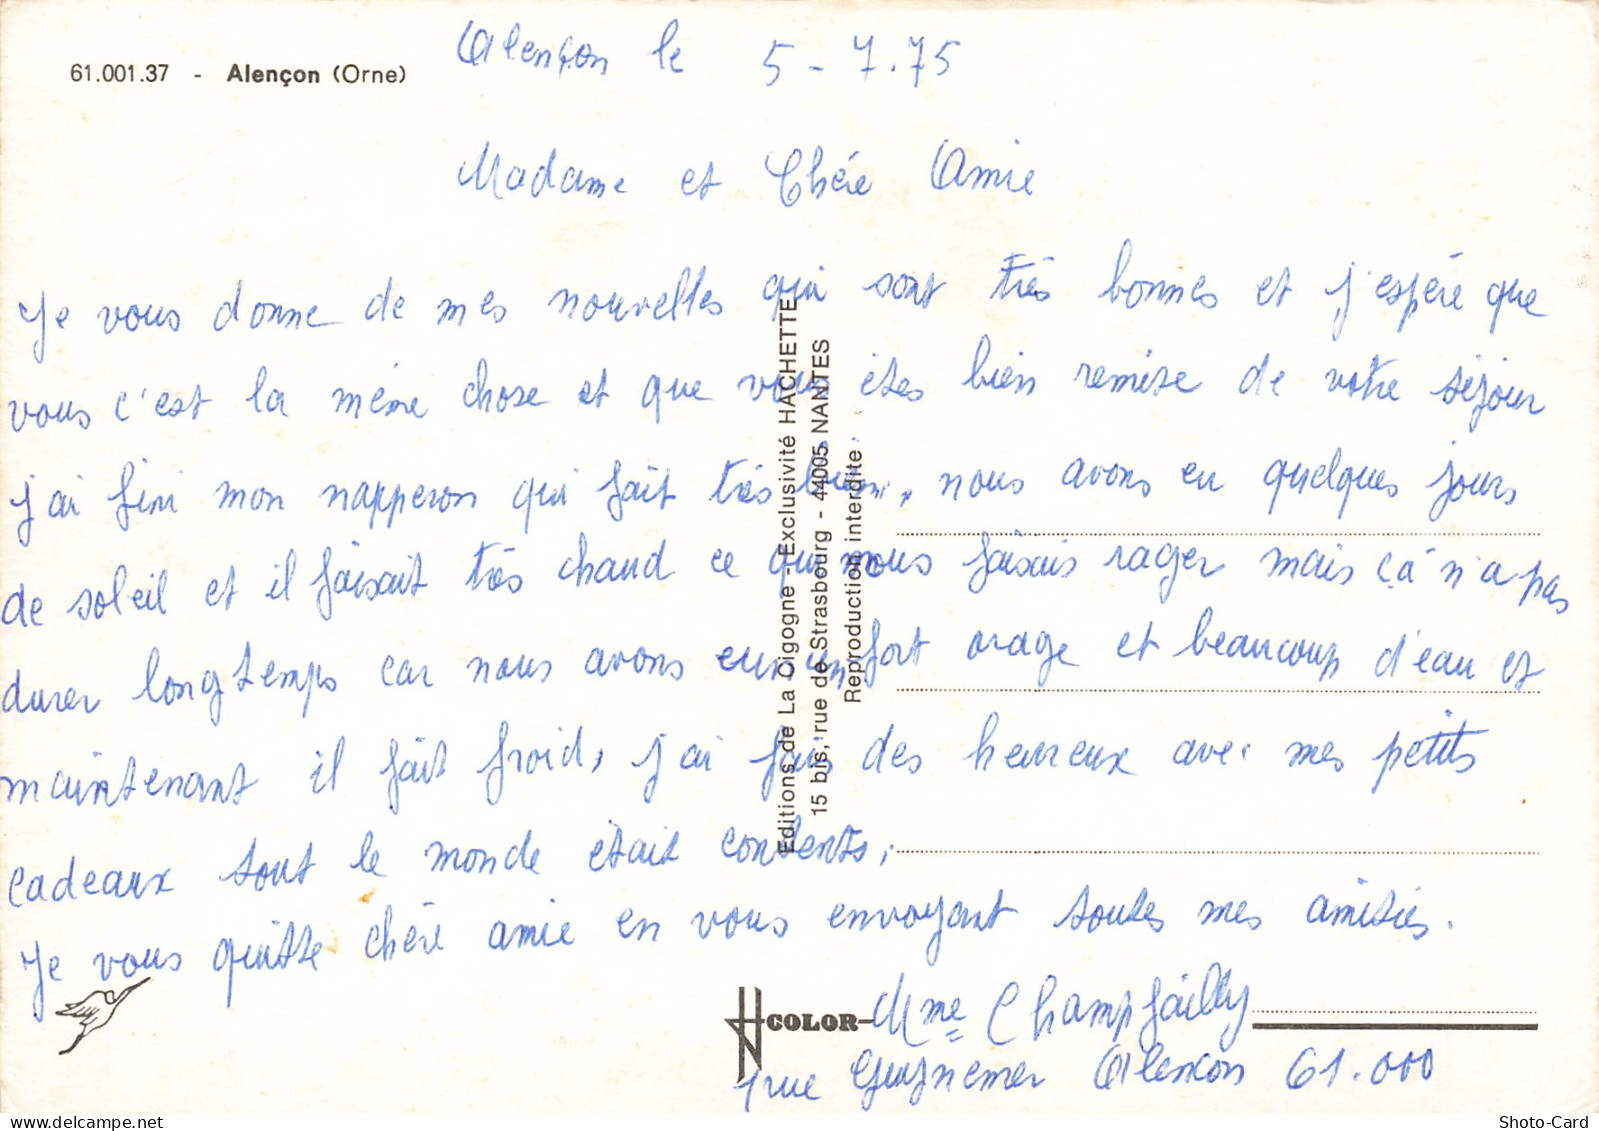 61.001.37 - Alençon (Orne)
Alençon le 5-7.75
Madame et Chére Amie
Je vous donne de mes nouvelles qui sont très bonnes et j'espére que
vous c'est la méme chose et que vous étes bien remise de votre séjour
j'ai fini mon napperon qui fait très bien, nous avons eu quelques jours
de soleil et il faisait très chaud ce qui nous faisais rager mais ça n'a pas
durer longtemps car nous avons eu un fort orage et beaucoup d'eau et
maintenant il fait froid, j'ai fais des heureux avec mes petits
cadeaux tout le monde était contents,
Je vous quitte chére amie en vous envoyant toutes mes amitiés.
Mme Champfailly
1 rue Guynemer Alencon 61.000
Editions de La Cigogne - Exclusivité HACHETTE
15 bis, rue de Strasbourg - 44005 NANTES
Reproduction interdite
COLOR
Shoto-Card